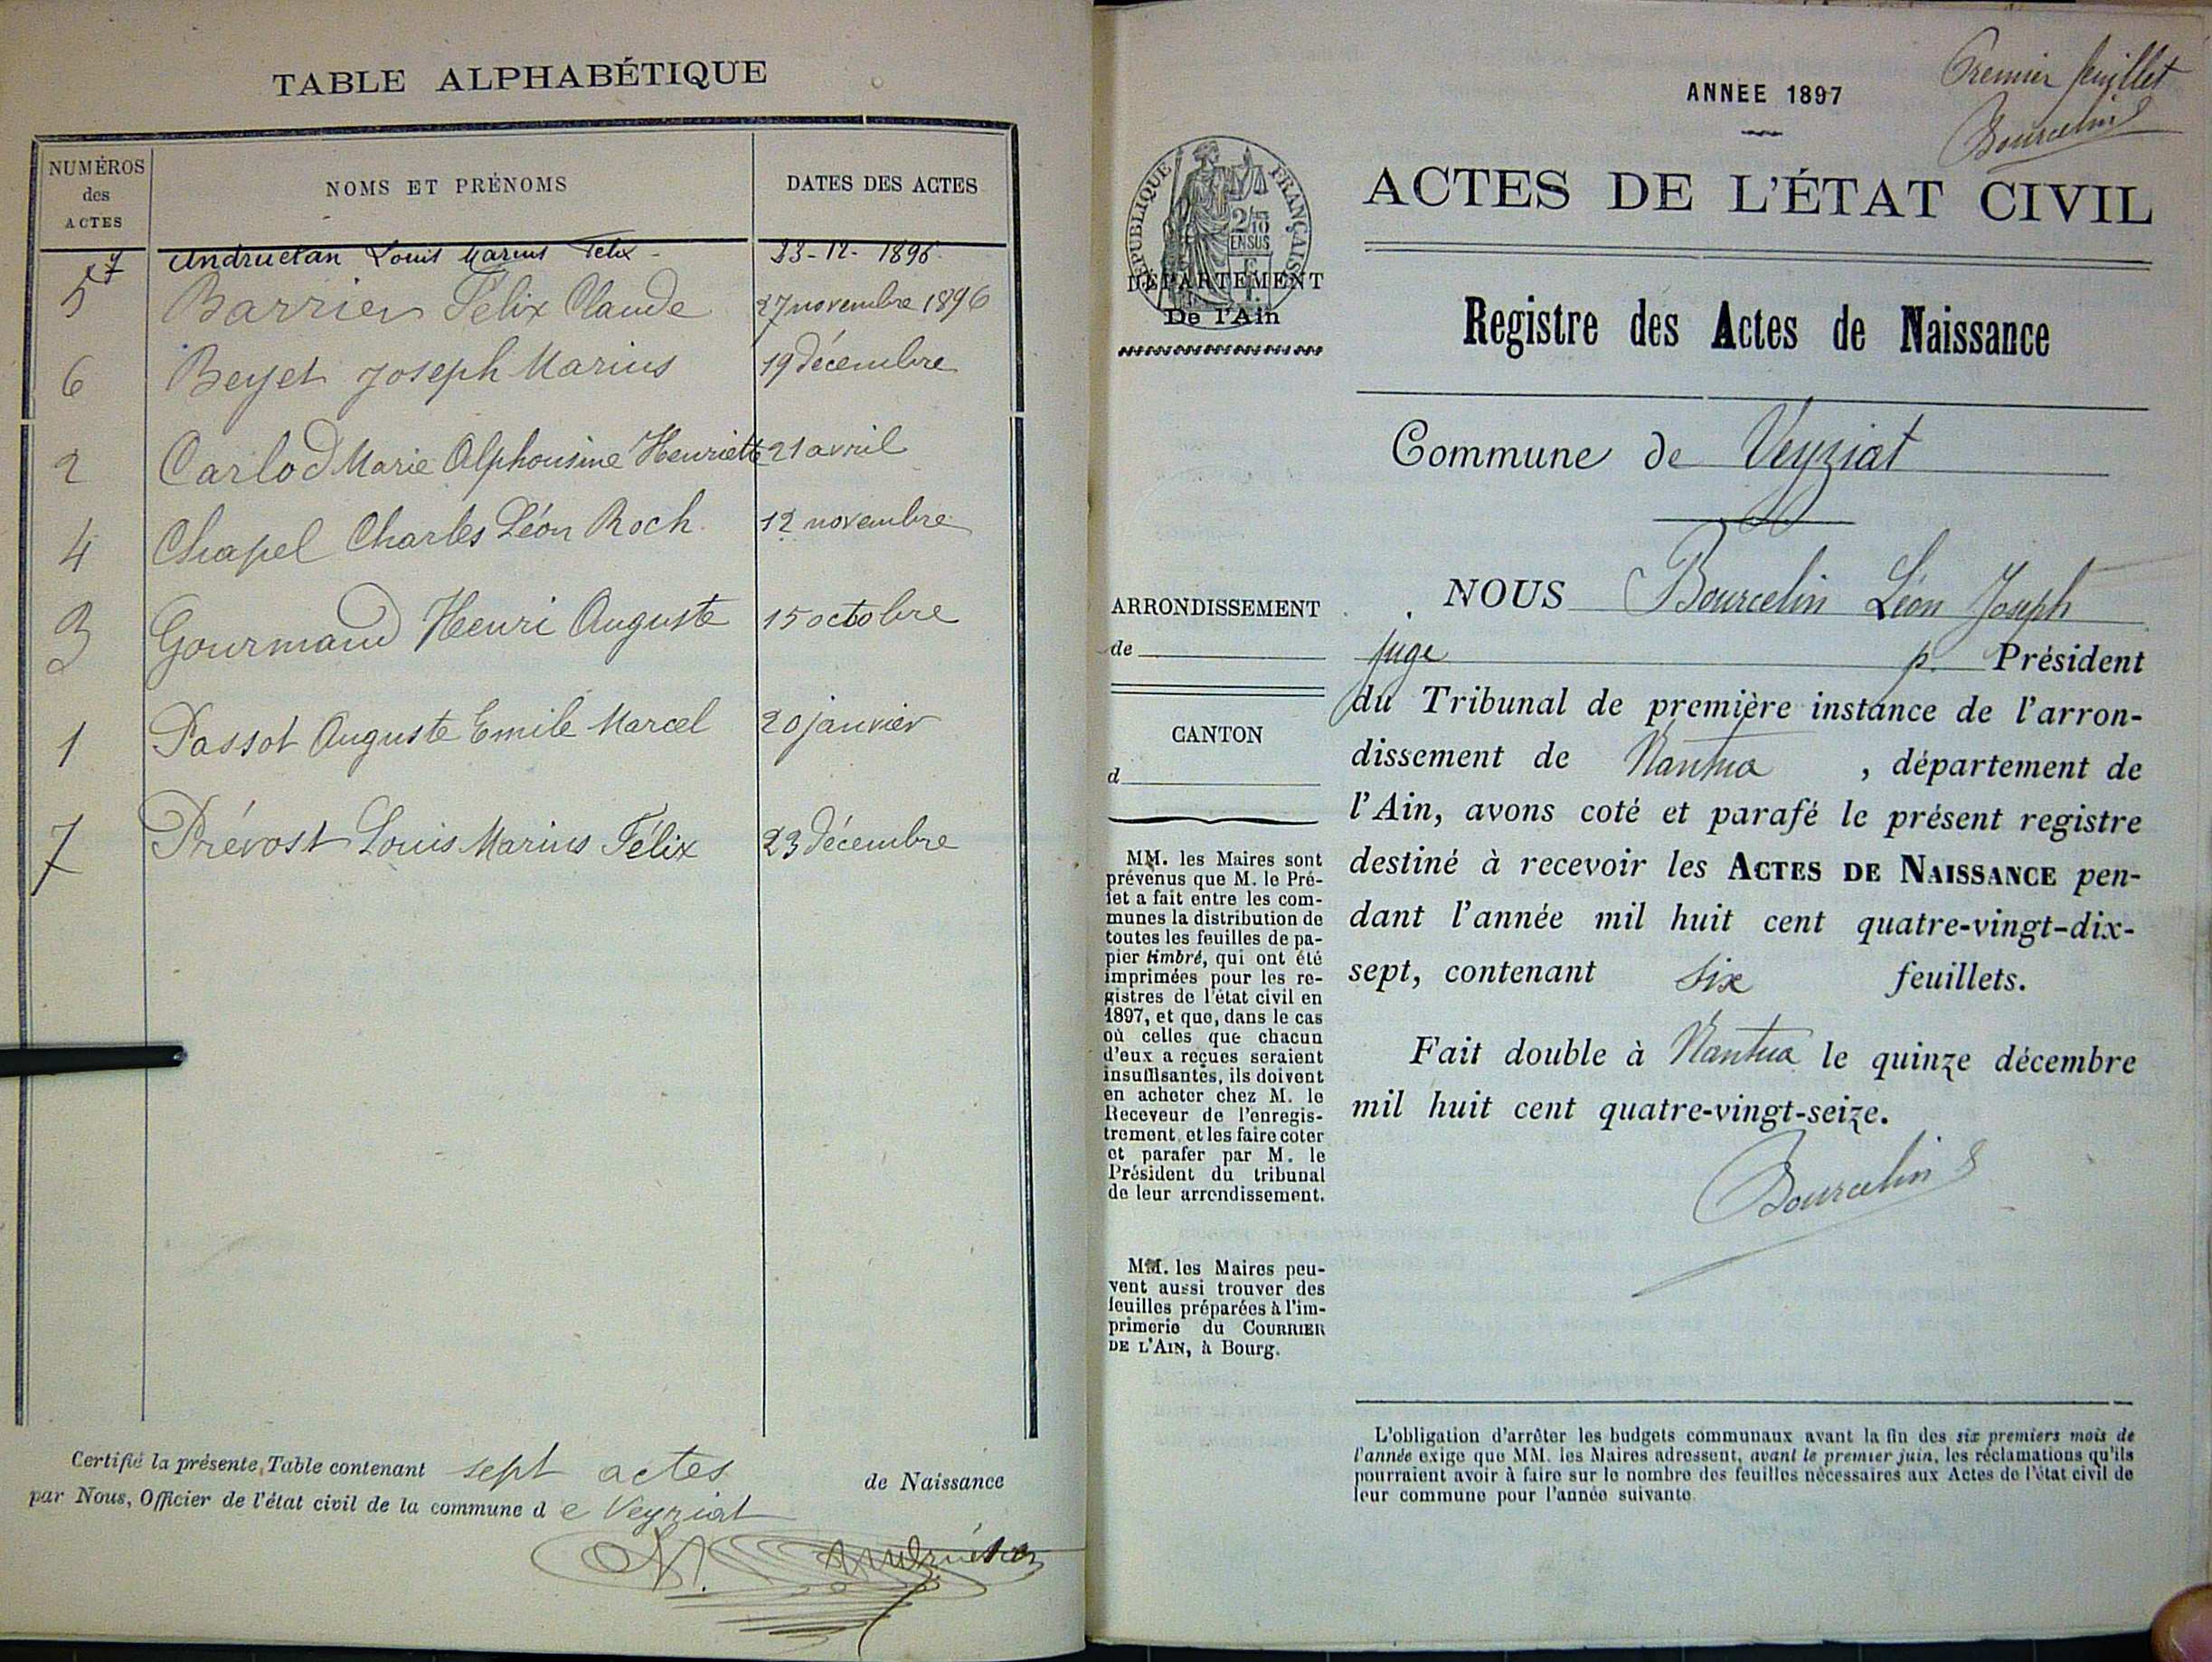 TABLE ALPHABÉTIQUE
NUMÉROS des ACTES NOMS ET PRÉNOMS DATES DES ACTES
7 Andruetan Louis Marius Felix 23-12-1896
5 Barrier Félix Claude 27 novembre 1896
6 Beyet Joseph Marius 19 décembre
2 Carlod Marie Alphonsine Henriette 21 avril
4 Chapel Charles Léon Roch 12 novembre
3 Gourmand Henri Auguste 15 octobre
1 Passot Auguste Emile Marcel 20 janvier
7 Prévost Louis Marius Félix 23 décembre
Certifié la présente Table contenant sept actes de Naissance
par Nous, Officier de l'état civil de la commune d e Veyziat
Premier feuillet
Bourcelin
ANNEE 1897
ACTES DE L'ÉTAT CIVIL
RÉPUBLIQUE FRANÇAISE
2/10 EN SUS
DÉPARTEMENT
De l'Ain
Registre des Actes de Naissance
Commune de Veyziat
ARRONDISSEMENT
de
CANTON
d
MM. les Maires sont
prévenus que M. le Pré-
fet a fait entre les com-
munes la distribution de
toutes les feuilles de pa-
pier timbré, qui ont été
imprimées pour les re-
gistres de l'état civil en
1897, et que, dans le cas
où celles que chacun
d'eux a reçues seraient
insuffisantes, ils doivent
en acheter chez M. le
Receveur de l'enregis-
trement, et les faire coter
et parafer par M. le
Président du tribunal
de leur arrondissement.
MM. les Maires peu-
vent aussi trouver des
feuilles préparées à l'im-
primerie du COURRIER
DE L'AIN, à Bourg.
NOUS Bourcelin Léon Joseph
juge p. Président
du Tribunal de première instance de l'arron-
dissement de Nantua , département de
l'Ain, avons coté et parafé le présent registre
destiné à recevoir les ACTES DE NAISSANCE pen-
dant l'année mil huit cent quatre-vingt-dix-
sept, contenant six feuillets.
Fait double à Nantua le quinze décembre
mil huit cent quatre-vingt-seize.
Bourcelin
L'obligation d'arrêter les budgets communaux avant la fin des six premiers mois de
l'année exige que MM. les Maires adressent, avant le premier juin, les réclamations qu'ils
pourraient avoir à faire sur le nombre des feuilles nécessaires aux Actes de l'état civil de
leur commune pour l'année suivante.